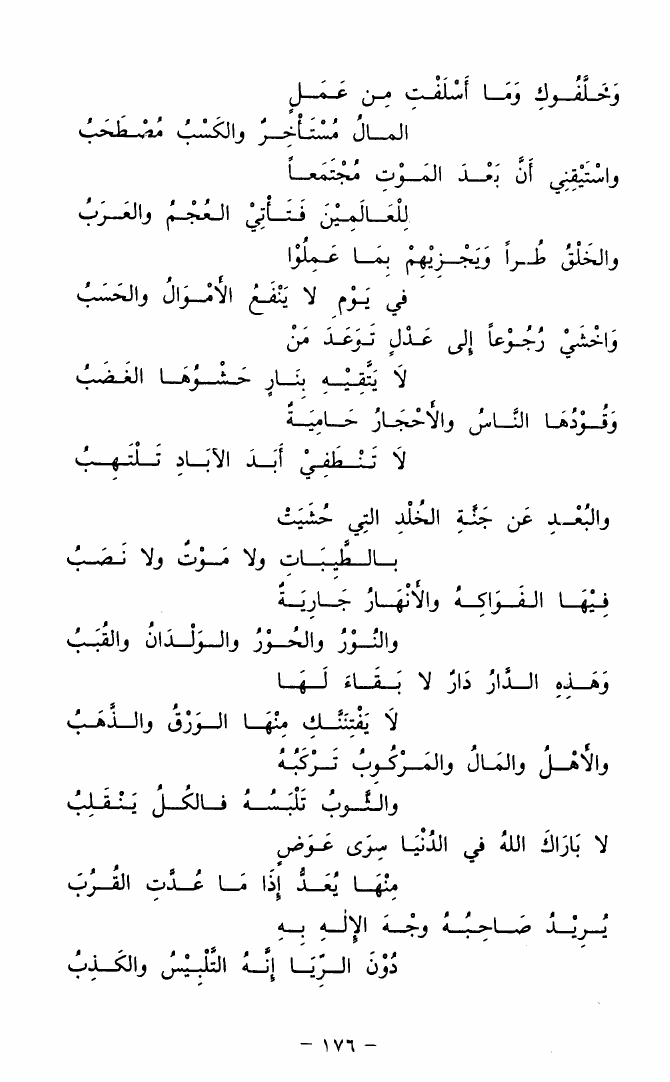 وَخَلَّفُوكِ وَمَا أَسْلَفْتِ مِن عَمَلٍ
المالُ مُسْتَأْخِرٌ والكَسْبُ مُصْطَحَبُ
واسْتَيْقِنِي أَنَّ بَعْدَ المَوْتِ مُجْتَمَعاً
لِلْعَالَمِيْنَ فَتَأْتِيْ العُجْمُ والعَرَبُ
والخَلْقُ طُراً وَيَجْزِيْهِمْ بِمَا عَمِلُوْا
في يَوْمِ لا يَنْفَعُ الأَمْوَالُ والحَسَبُ
وَاخْشَيْ رُجُوْعاً إِلى عَدْلٍ تَوَعَدَ مَنْ
لاَ يَتَّقِيْهِ بِنَارٍ حَشْوُهَا الغَضَبُ
وَقُوْدُهَا النَّاسُ والأَحْجَارُ حَامِيَةٌ
لاَ تَنْطَفِيْ أَبَدَ الآبَادِ تَلْتَهِبُ
والبُعْدِ عَن جَنَّةِ الخُلْدِ التِي حُشِيَتْ
بِالطَّيِبَاتِ ولا مَوْتٌ ولا نَصَبُ
فِيْهَا الفَوَاكِهُ والأَنْهَارُ جَارِيَةٌ
والنُوْرُ والحُوْرُ والوِلْدَانُ والقُبَبُ
وَهَذِهِ الدَّارُ دَارٌ لا بَقَاءَ لَهَا
لاَ يَفْتِنَنَّكِ مِنْهَا الوَرْقُ والذَّهَبُ
والأَهْلُ والمَالُ والمَرْكُوبُ تَرْكَبُهُ
والثَّوبُ تَلْبَسُهُ فالكُلُ يَنْقَلِبُ
لا بَارَكَ اللهُ في الدُنْيَا سِوَى عَرَضٍ
مِنْهَا يُعَدُّ إِذَا مَا عُدَّتِ القُرَبُ
يُرِيْدُ صَاحِبُهُ وَجْهَ الإِلٰهِ بِهِ
دُوْنَ الرِّيَا إِنَّهُ التَّلْبِيْسُ والكَذِبُ
- ١٧٦ -